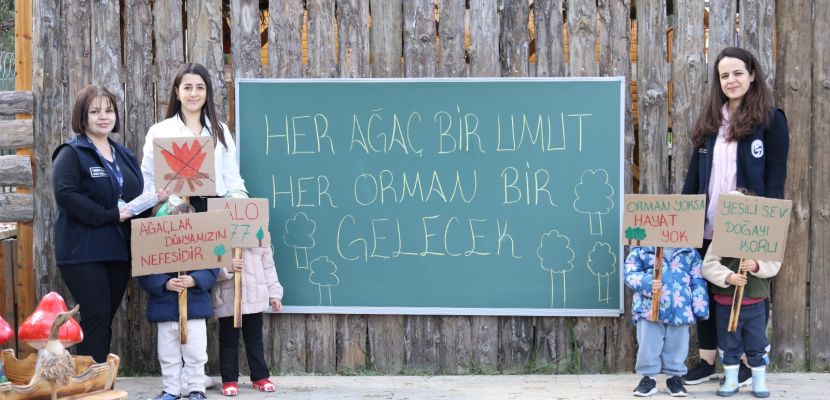 HER AĞAÇ BİR UMUT
HER ORMAN BİR
GELECEK
AĞAÇLAR
DÜNYAMIZIN
NEFESİDİR
ALO
77
ORMAN YOKSA
HAYAT
YOK
YEŞİLİ SEV
DOĞAYI
KORU